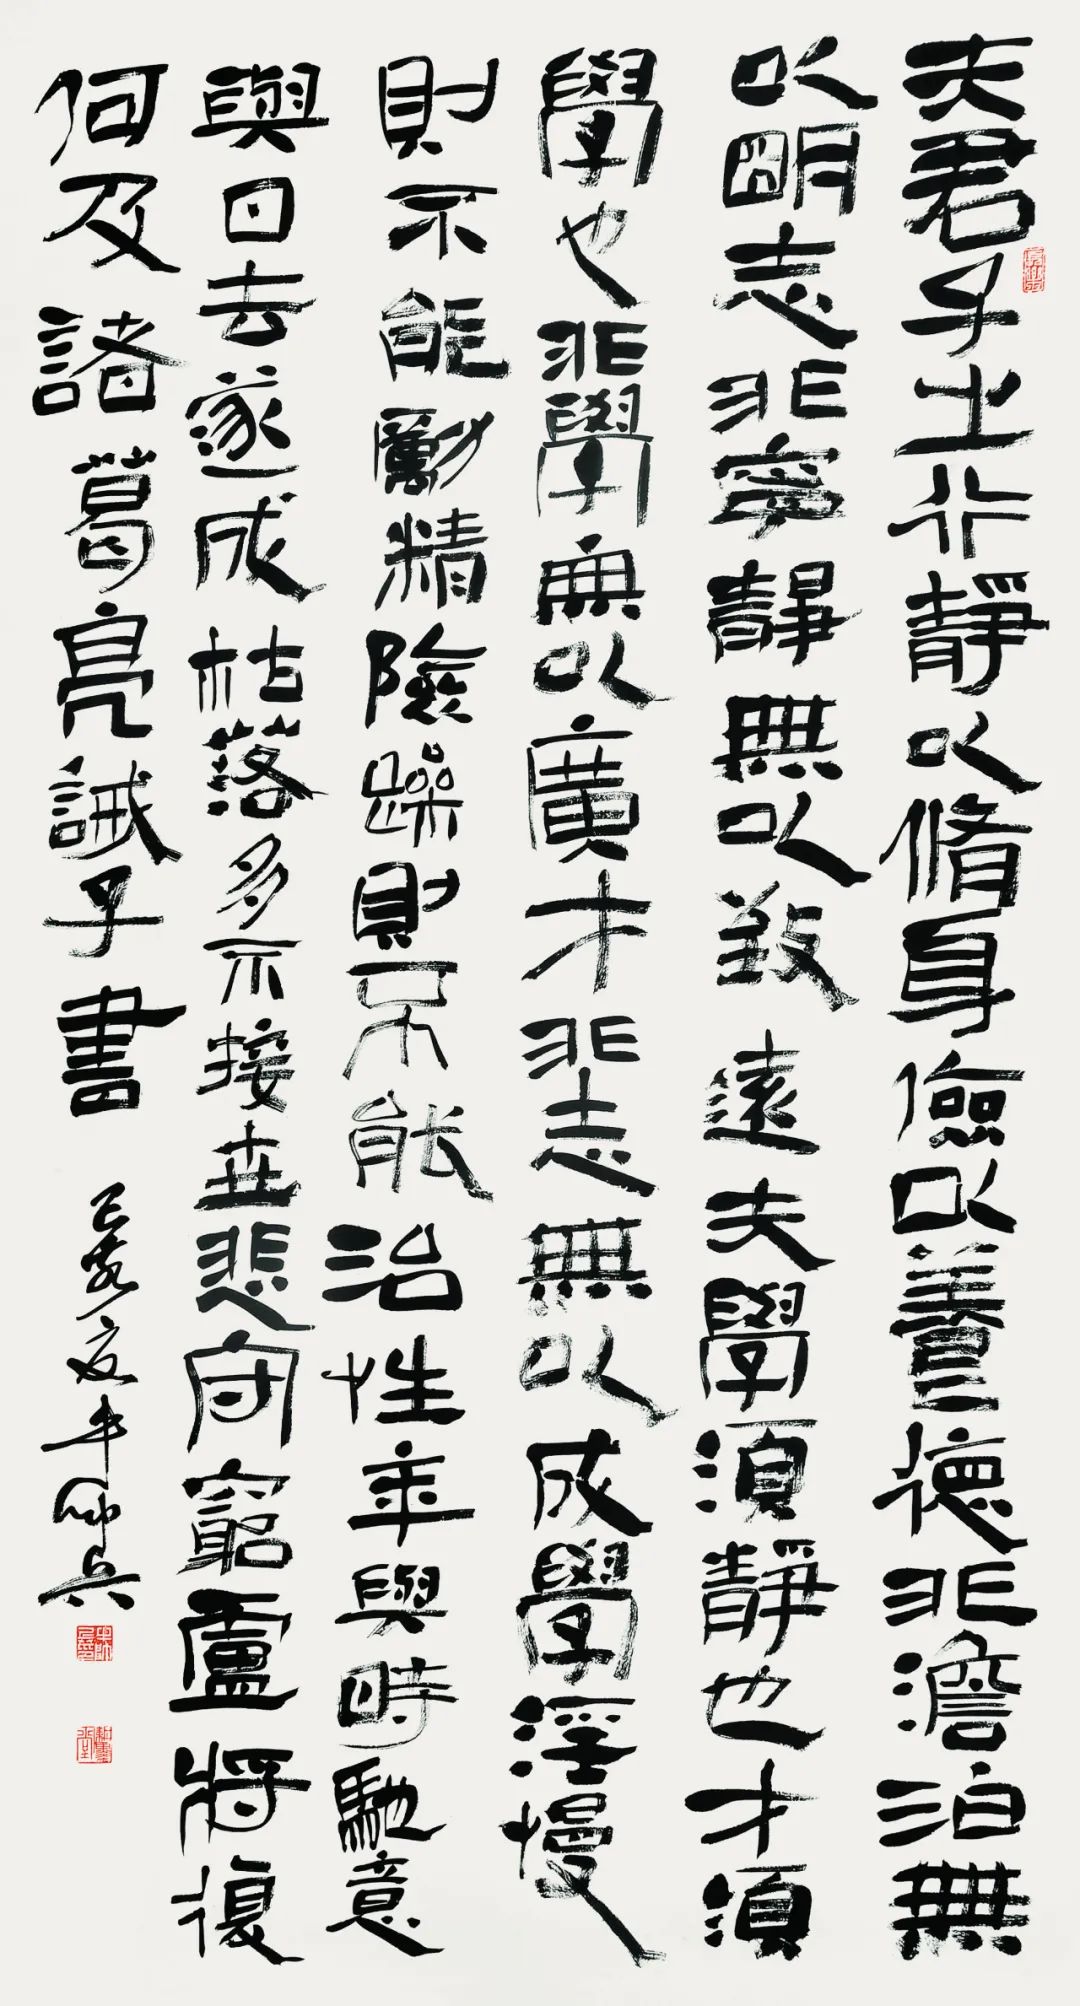 夫君子之行靜以脩身儉以養德非澹泊無
以明志非寧靜無以致遠夫學須靜也才須
學也非學無以廣才非志無以成學淫慢
則不能勵精險躁則不能治性年與時馳意
與日去遂成枯落多不接世悲守窮盧將復
何及諸葛亮誡子書 己亥夏